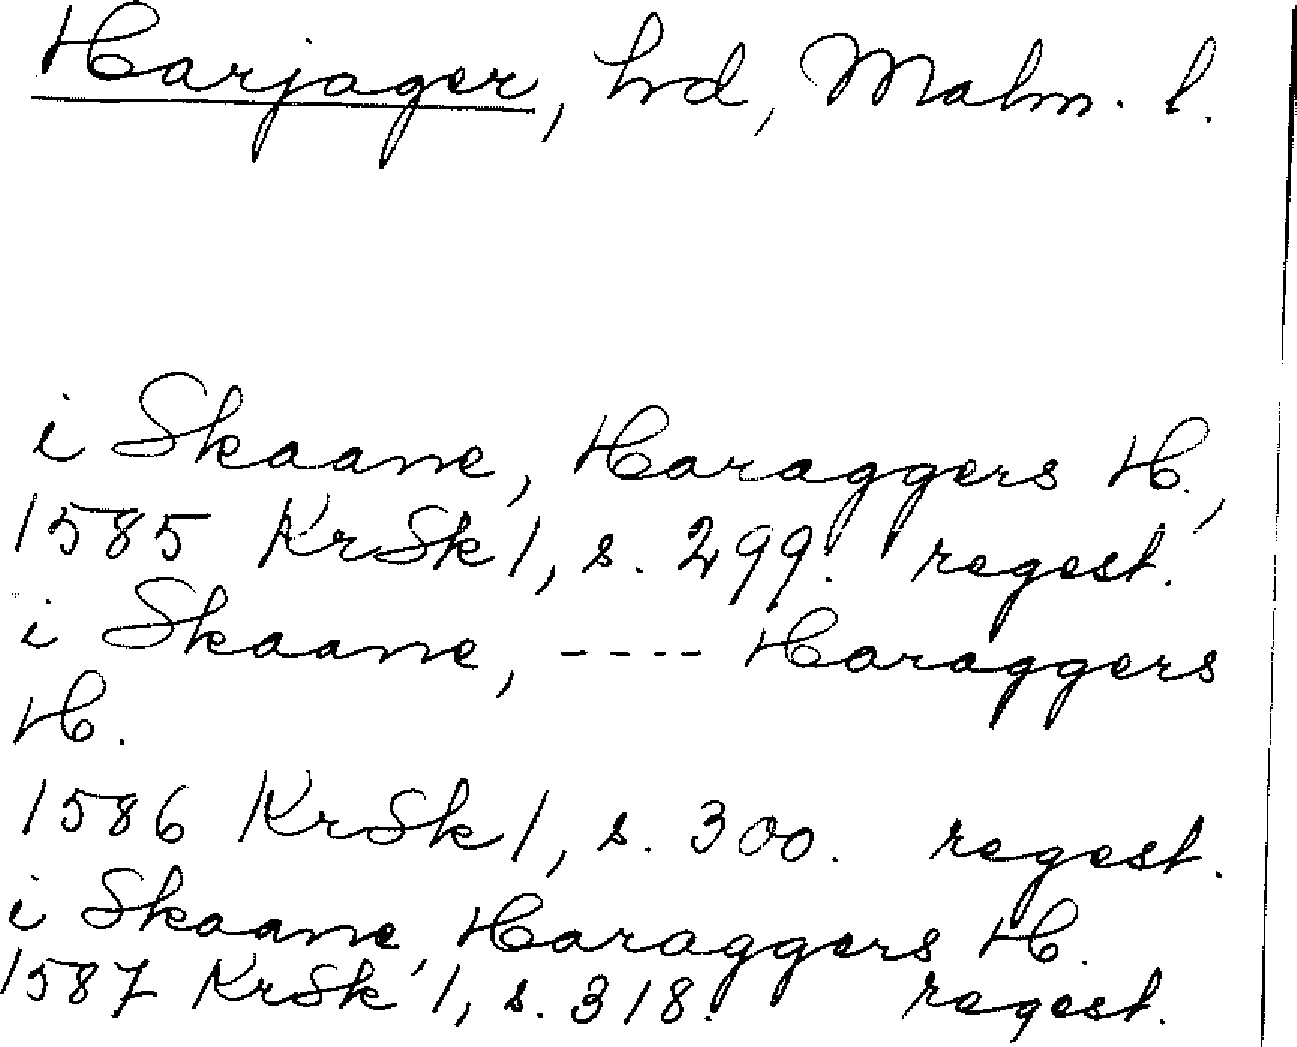 Harjager, hrd, Malm. l.
i Skaane, Haraggers H.,
1585 KrSk 1, s. 299. regest.
i Skaane, ---- Haraggers
H.
1586 KrSk 1, s. 300. regest.
i Skaane, Haraggers H.
1587 KrSk 1, s. 318. regest.